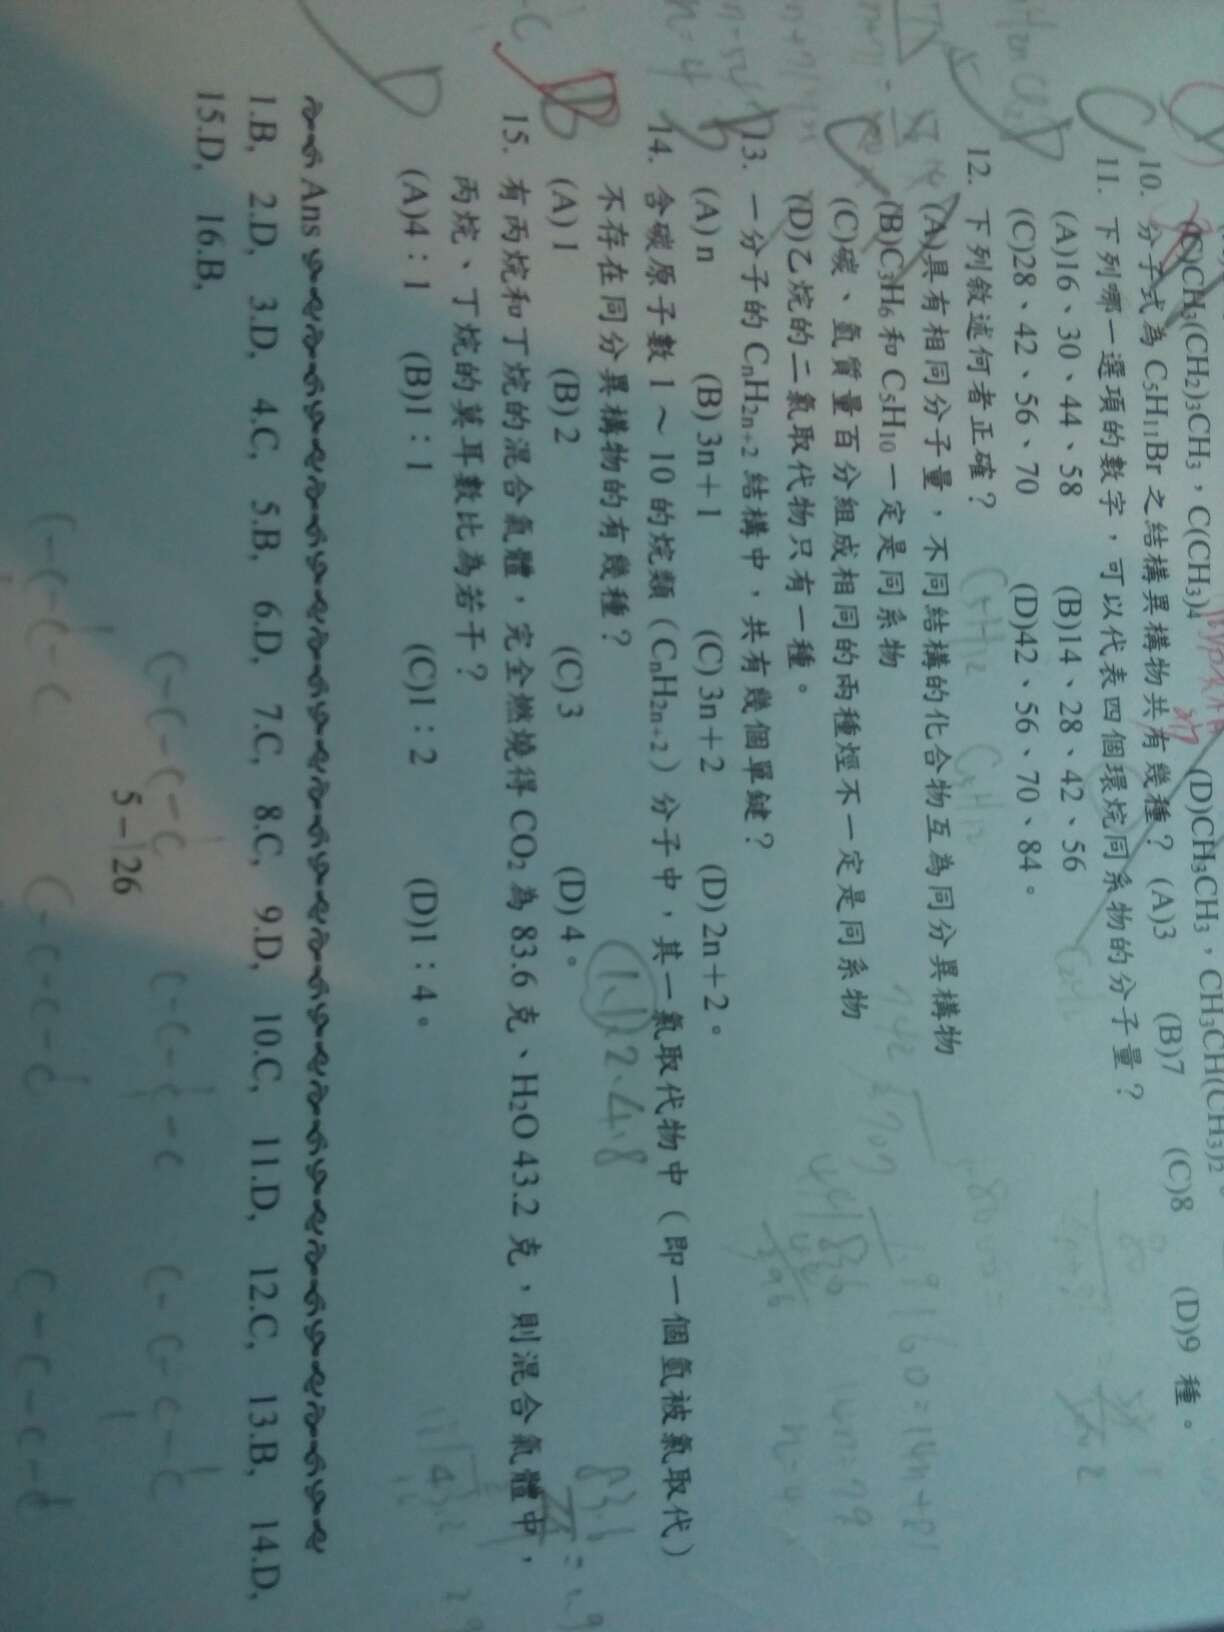 (C)CH₃(CH₂)₃CH₃，C(CH₃)₄ (D)CH₃CH₃，CH₃CH(CH₃)₂
10. 分子式為 C₅H₁₁Br 之結構異構物共有幾種？ (A)3 (B)7 (C)8 (D)9 種。
11. 下列哪一選項的數字，可以代表四個環烷同系物的分子量？
(A)16、30、44、58 (B)14、28、42、56
(C)28、42、56、70 (D)42、56、70、84。
12. 下列敘述何者正確？
(A)具有相同分子量，不同結構的化合物互為同分異構物
(B)C₃H₆ 和 C₅H₁₀ 一定是同系物
(C)碳、氫質量百分組成相同的兩種烴不一定是同系物
(D)乙烷的二氯取代物只有一種。
13. 一分子的 CₙH₂ₙ₊₂ 結構中，共有幾個單鍵？
(A) n (B) 3n＋1 (C) 3n＋2 (D) 2n＋2。
14. 含碳原子數 1～10 的烷類（CₙH₂ₙ₊₂）分子中，其一氯取代物中（即一個氫被氯取代）
不存在同分異構物的有幾種？
(A) 1 (B) 2 (C) 3 (D) 4。
1、2、4、8
15. 有丙烷和丁烷的混合氣體，完全燃燒得 CO₂ 為 83.6 克、H₂O 43.2 克，則混合氣體中，
丙烷、丁烷的莫耳數比為若干？
(A)4：1 (B)1：1 (C)1：2 (D)1：4。
Ans
1.B, 2.D, 3.D, 4.C, 5.B, 6.D, 7.C, 8.C, 9.D, 10.C, 11.D, 12.C, 13.B, 14.D,
15.D, 16.B,
5－126